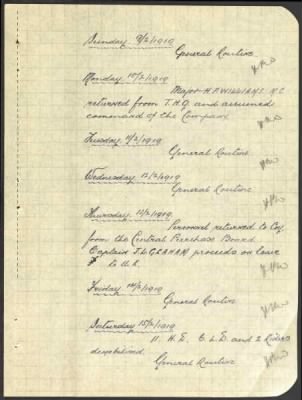 Sunday 9/2/1919
General Routine
Monday 10/2/1919
Major H.P. WILLIAMS M.C
returned from T.H.Q and assumed
command of the Company
Tuesday 11/2/1919
General Routine
Wednesday 12/2/1919
General Routine
Thursday 13/2/1919
Personnel returned to Coy
from the Central Purchase Board
Captain J.L. GRAHAM proceeds on leave
to U.K.
Friday 14/2/1919
General Routine
Saturday 15/2/1919
11. H.D. 6 L.D. and 2 Riders
General Routine